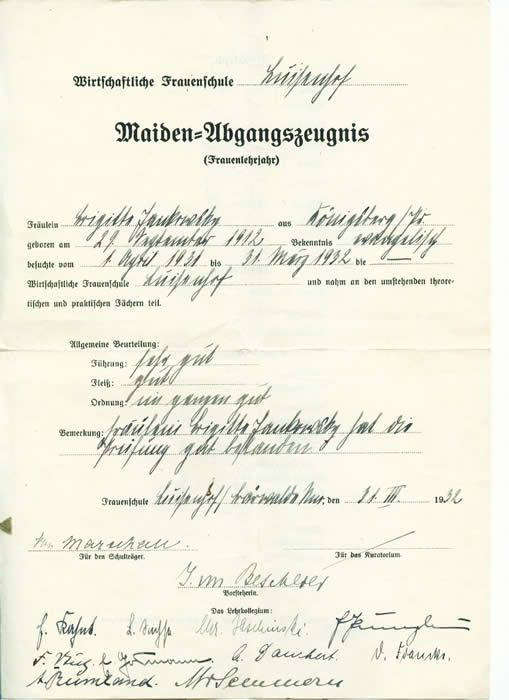 Wirtschaftliche Frauenschule Luisenhof
Maiden-Abgangszeugnis
(Frauenlehrjahr)
Fräulein Brigitte Jankowsky aus Königsberg/Pr.
geboren am 29. September 1912 Bekenntnis evangelisch
besuchte vom 1. April 1931 bis 31. März 1932 die —
Wirtschaftliche Frauenschule Luisenhof und nahm an den umstehenden theore-
tischen und praktischen Fächern teil.
Allgemeine Beurteilung:
Führung: sehr gut
Fleiß: gut
Ordnung: im ganzen gut
Bemerkung: Fräulein Brigitte Jankowsky hat die
Prüfung gut bestanden
Frauenschule Luisenhof/Bärwalde Nm, den 31. III. 1932
Für den Schulträger. Für das Kuratorium.
Vorsteherin.
Das Lehrkollegium: